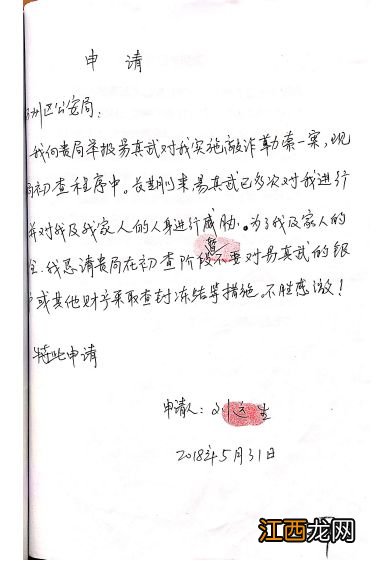 申 请
州区公安局：
我向贵局举报易真武对我实施敲诈勒索一案，现
初查程序中。长期来，易真武已多次对我进行
并对我及我家人的人身进行威胁。为了我及家人的
全，我恳请贵局在初查阶段暂不要对易真武的银
户或其他财产采取查封冻结等措施。不胜感激！
特此申请
申请人：刘 生
2018年5月31日
江西龙网